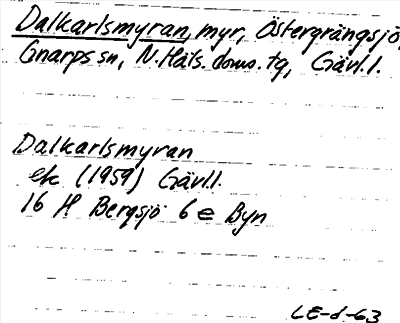 Dalkarlsmyran, myr, Östergrängsjö,
Gnarps sn, N. Häls. doms. tg, Gävl.l.
Dalkarlsmyran
ek (1959) Gävl.l.
16 H Bergsjö 6 e Byn
LE-d-63